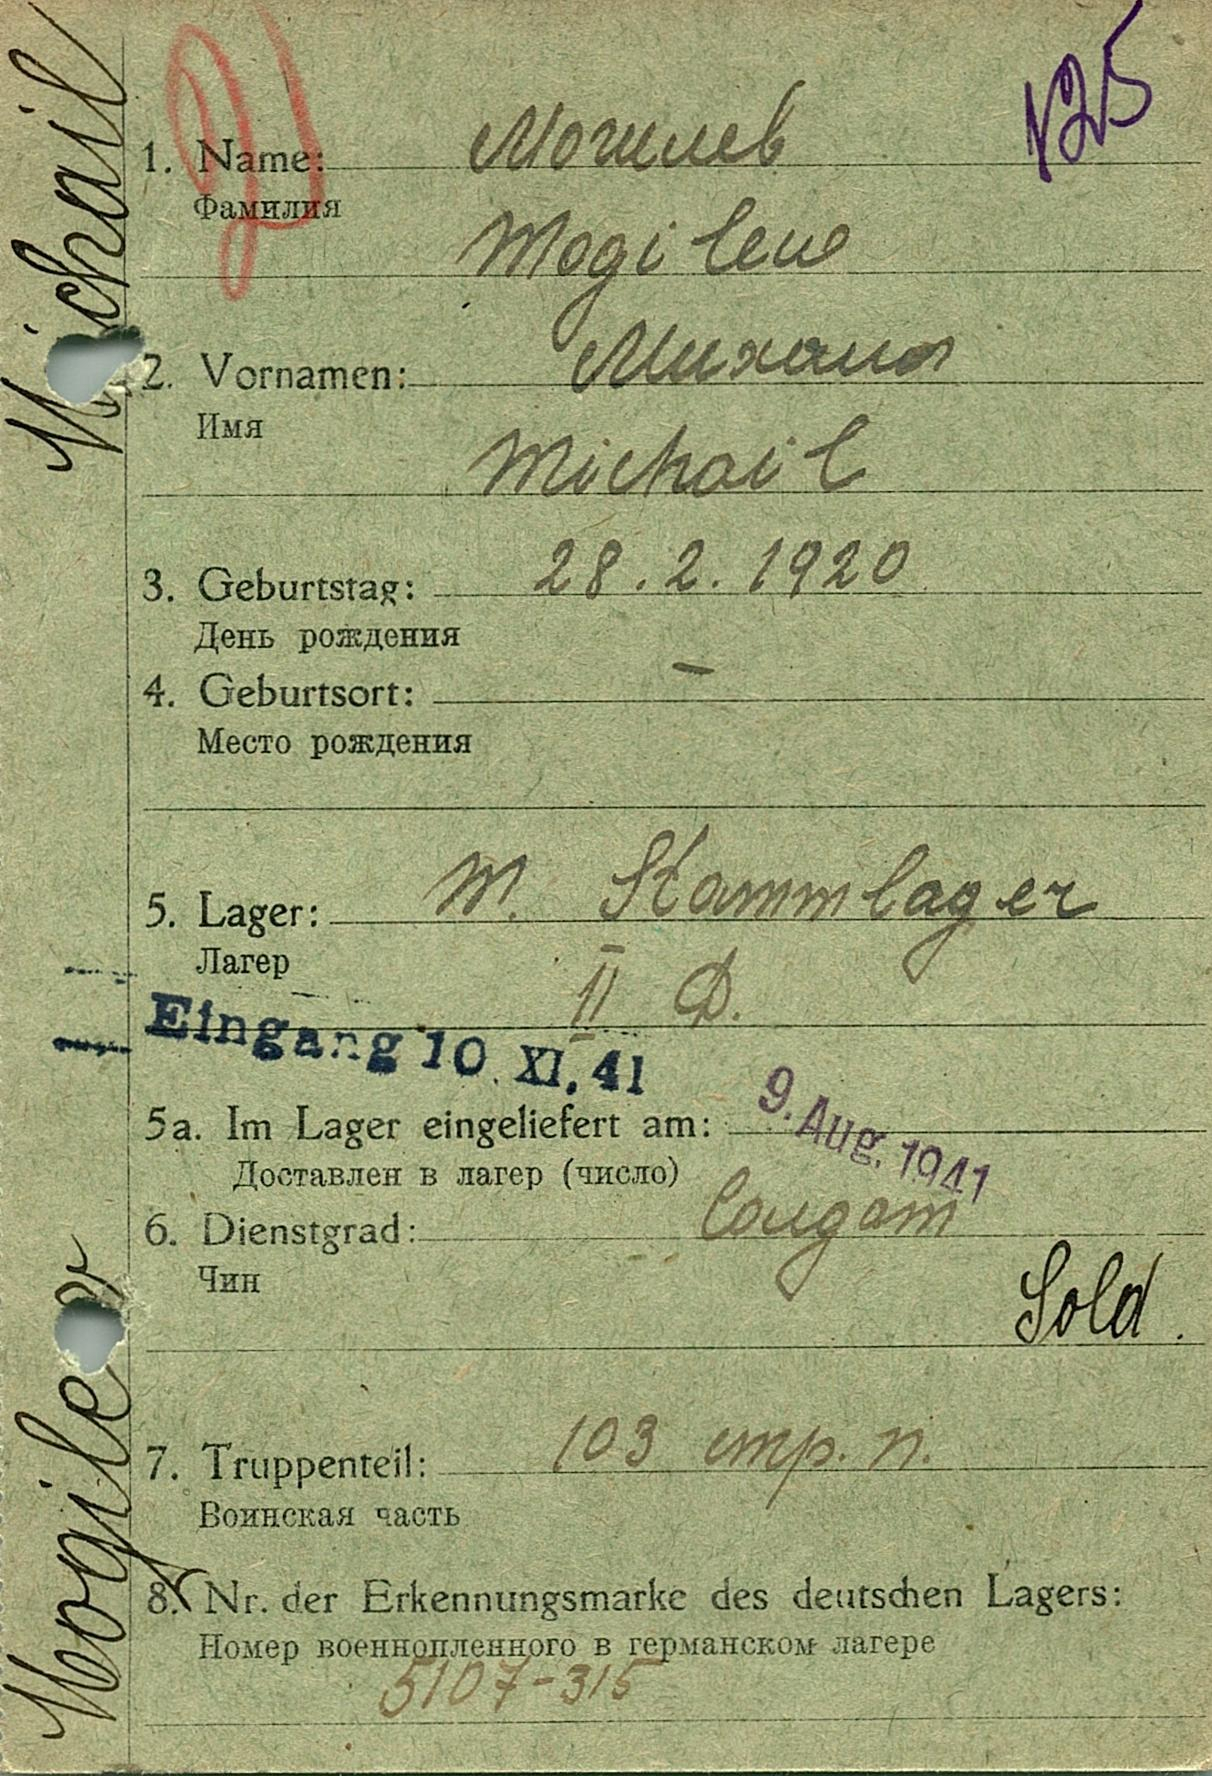 125
1. Name: Могилев
Фамилия
Mogilew
2. Vornamen: Михаил
Имя
Michail
3. Geburtstag: 28.2.1920
День рождения
4. Geburtsort: –
Место рождения
5. Lager: M. Stammlager
Лагер
II D.
Eingang 10. XI. 41
5a. Im Lager eingeliefert am: 9. Aug. 1941
Доставлен в лагер (число)
6. Dienstgrad: Солдат
Чин
Sold.
7. Truppenteil: 103 стр. п.
Воинская часть
8. Nr. der Erkennungsmarke des deutschen Lagers:
Номер военнопленного в германском лагере
5107-315
Mogilew Michail